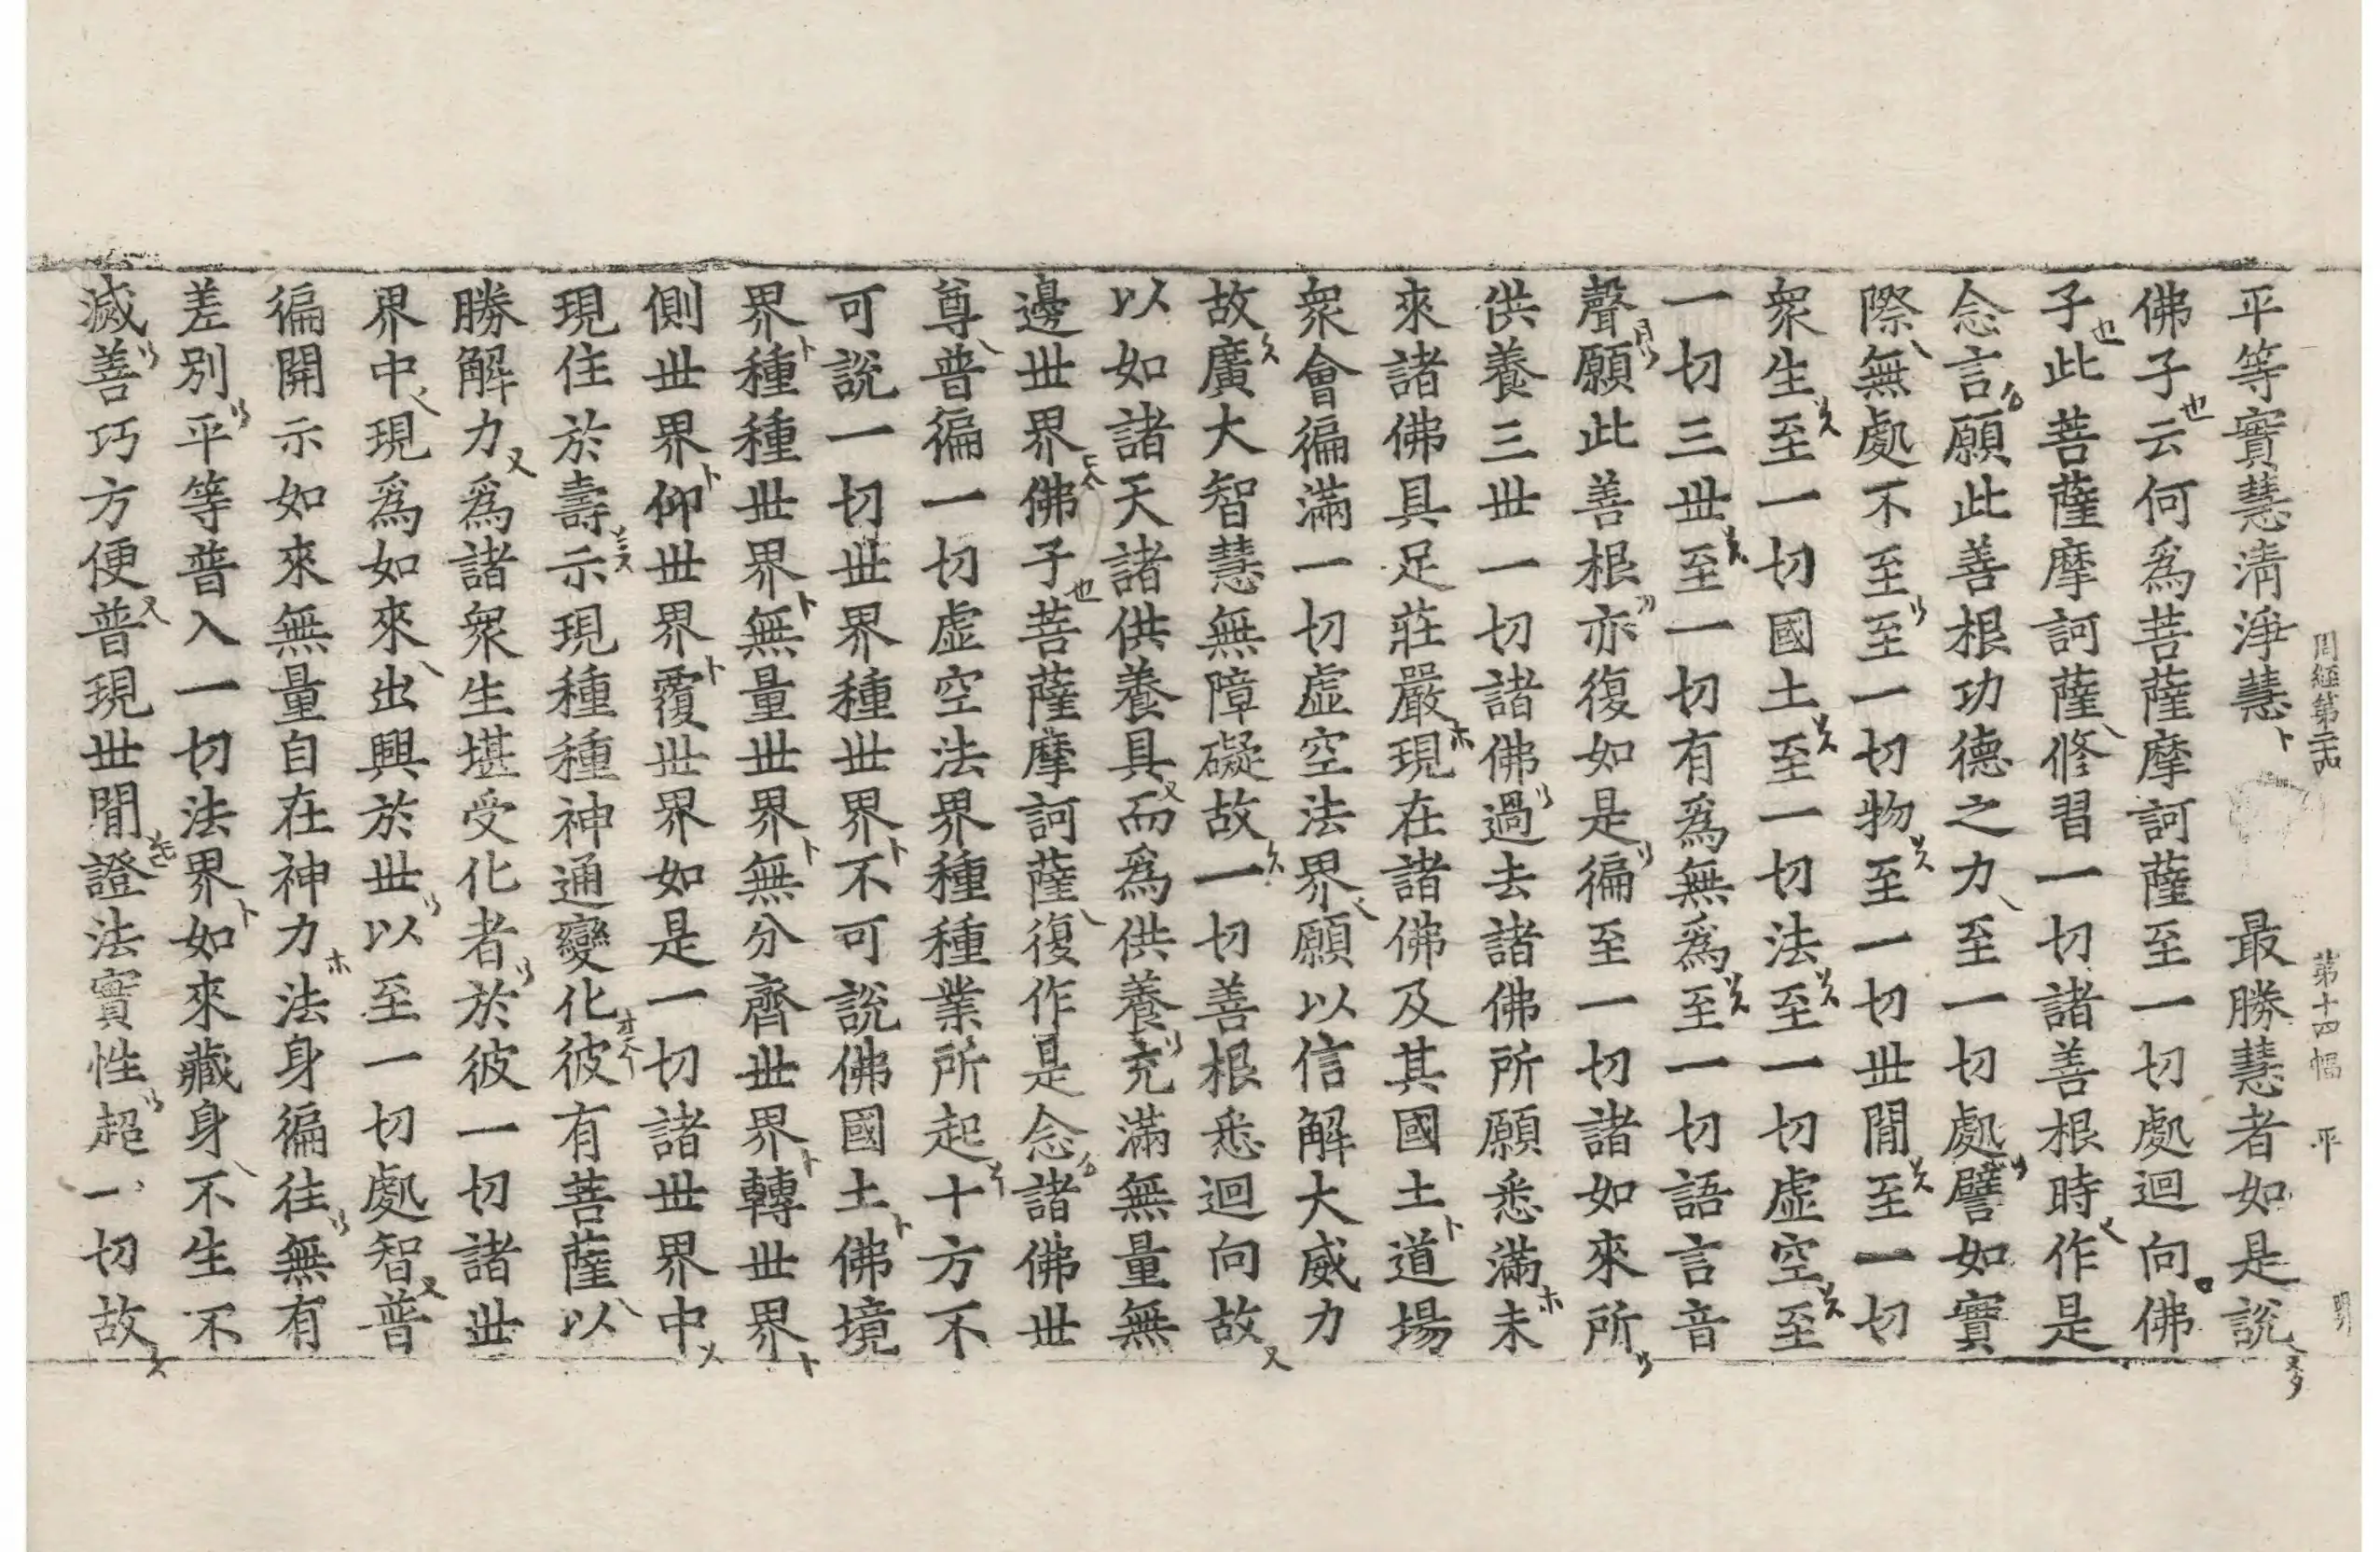 周經第二十四 第十四幅 平
平等實慧淸淨慧 最勝慧者如是說
佛子云何爲菩薩摩訶薩至一切處迴向佛
子此菩薩摩訶薩修習一切諸善根時作是
念言願此善根功德之力至一切處譬如實
際無處不至至一切物至一切世間至一切
衆生至一切國土至一切法至一切虛空至
一切三世至一切有爲無爲至一切語言音
聲願此善根亦復如是徧至一切諸如來所
供養三世一切諸佛過去諸佛所願悉滿未
來諸佛具足莊嚴現在諸佛及其國土道場
衆會徧滿一切虛空法界願以信解大威力
故廣大智慧無障礙故一切善根悉迴向故
以如諸天諸供養具而爲供養充滿無量無
邊世界佛子菩薩摩訶薩復作是念諸佛世
尊普徧一切虛空法界種種業所起十方不
可說一切世界種世界不可說佛國土佛境
界種種世界無量世界無分齊世界轉世界
側世界仰世界覆世界如是一切諸世界中
現住於壽示現種種神通變化彼有菩薩以
勝解力爲諸衆生堪受化者於彼一切諸世
界中現爲如來出興於世以至一切處智普
徧開示如來無量自在神力法身徧往無有
差別平等普入一切法界如來藏身不生不
滅善巧方便普現世間證法實性超一切故